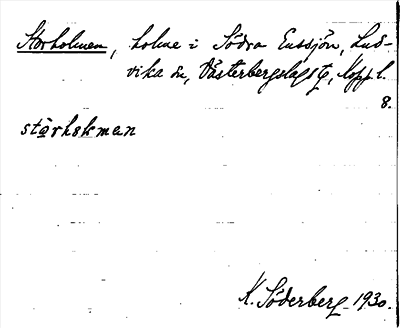 Storholmen, holme i Södra Eussjön, Lud-
vika sn, Västerbergslags tg, Kopp. l.
8.
stòrhɷlman
K. Söderberg 1930.